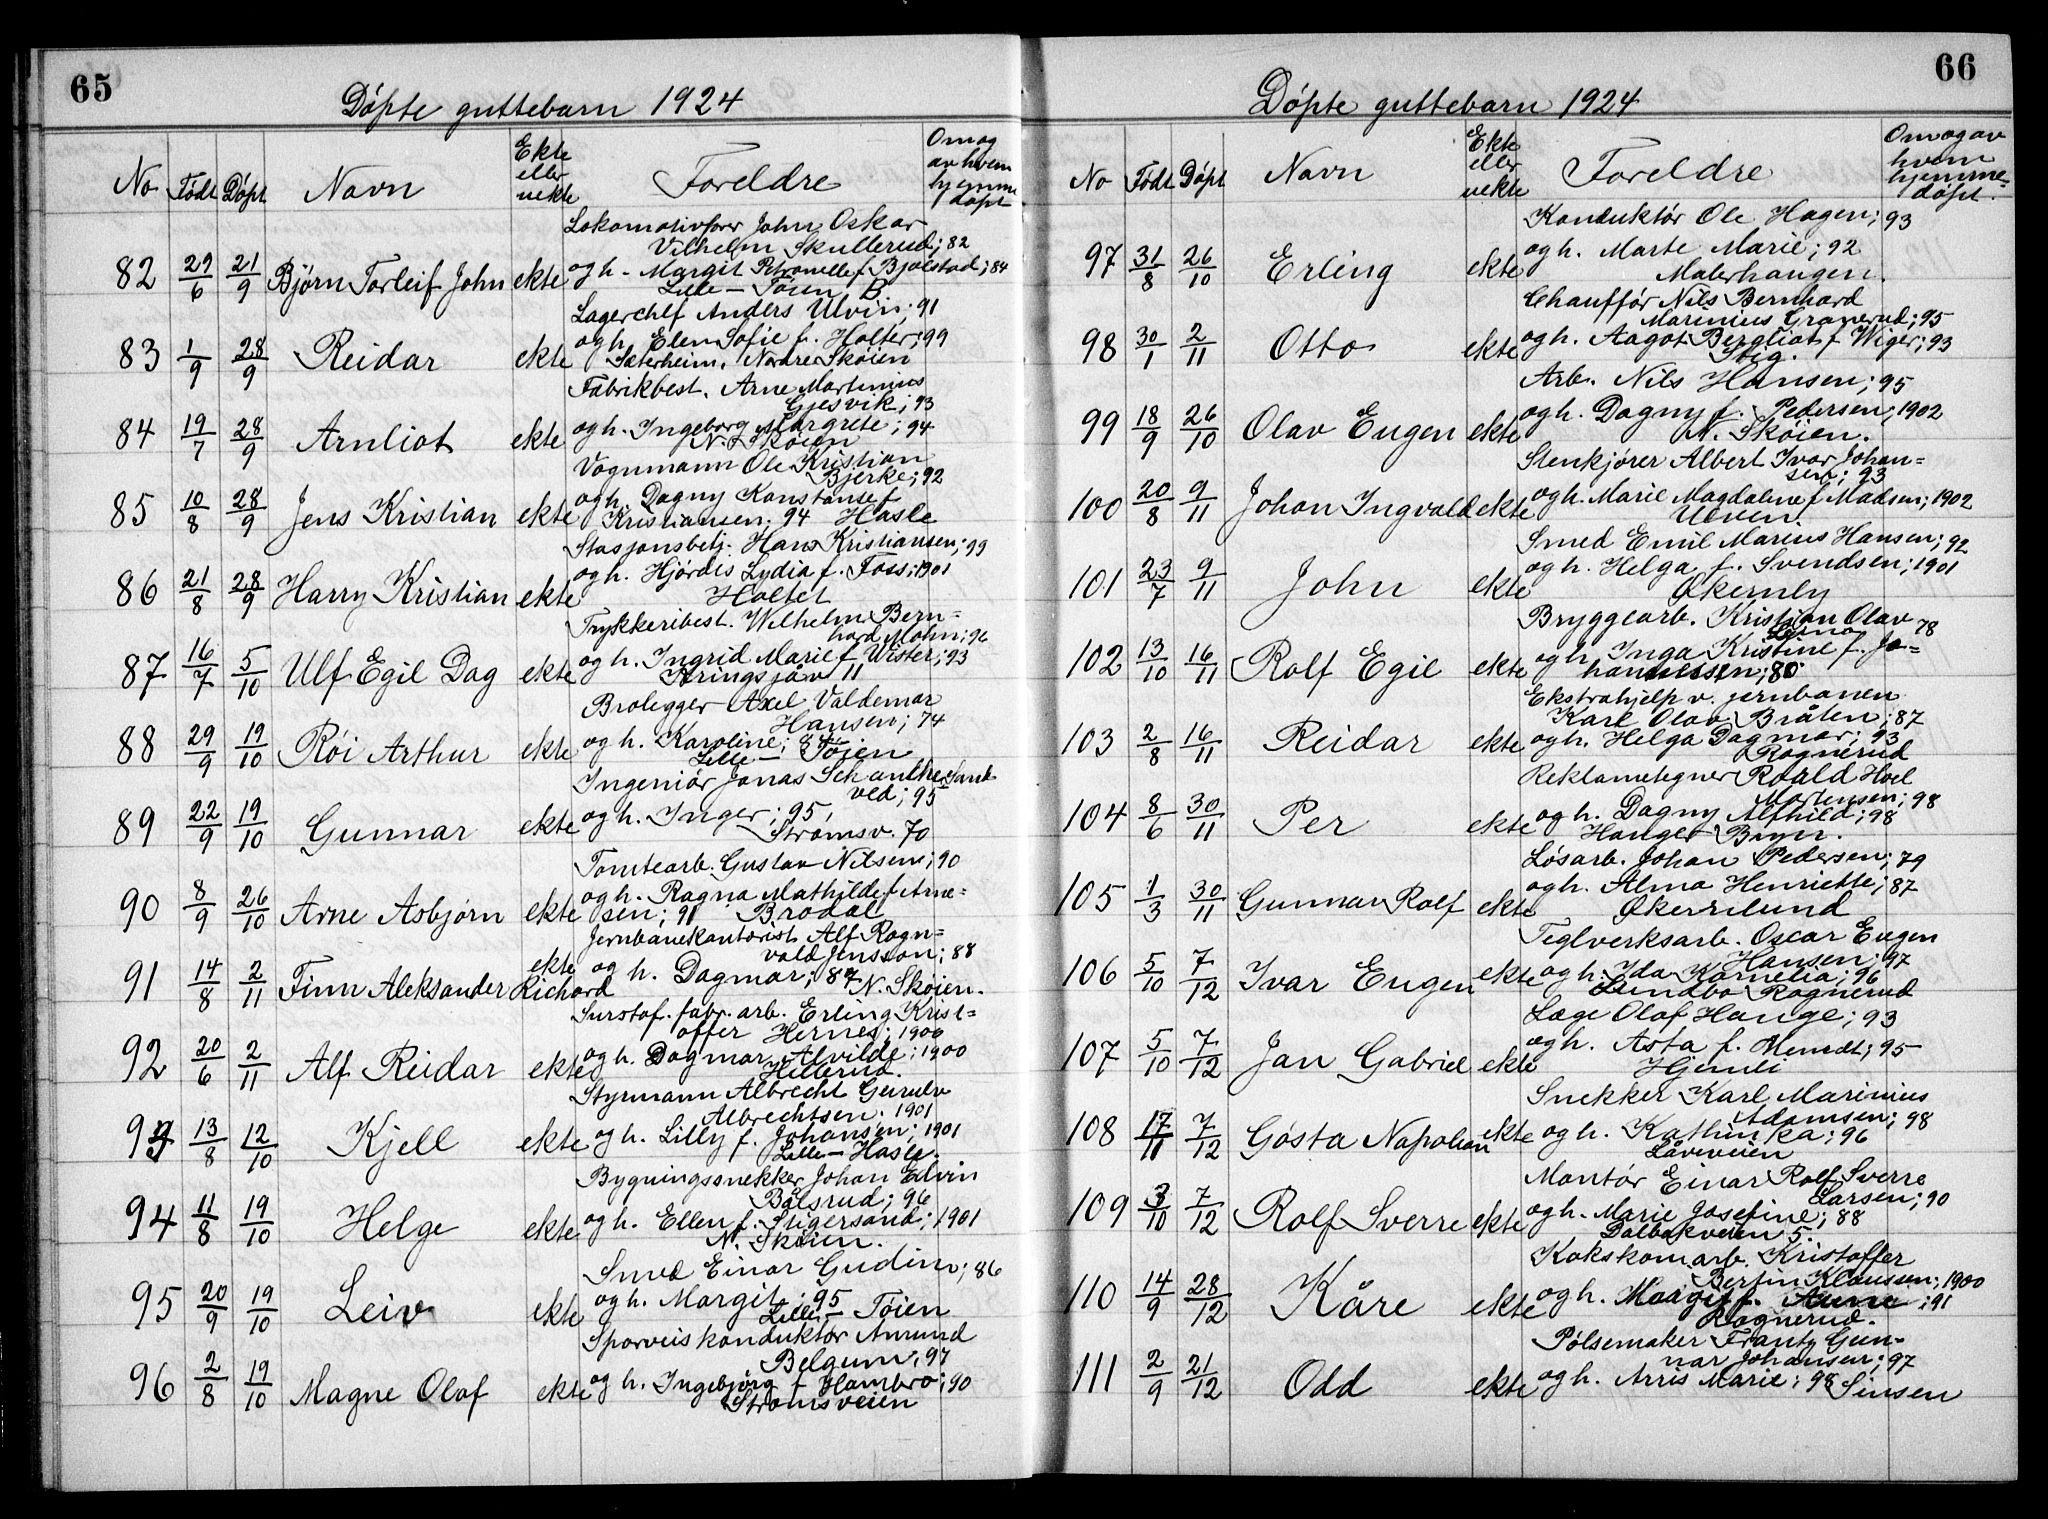 65
Döpte guttebarn 1924
No Födt Döpt Navn Ekte eller uekte Foreldre Om og av hvem hjemmedöpt
Lokomotivförer John Oskar
Vilhelm Skullerud; 82
82 29/6 21/9 Björn Torleif John ekte og h. Margit Petronelle f. Bjölstad; 84
Lille-Töien B
Lagerchef Anders Ulvin; 91
83 1/9 28/9 Reidar ekte og h. Elen Sofie f. Holter; 99
Sæterheim, Nordre Sköien
Fabrikbest. Arne Martinius
Gjesvik; 93
84 19/7 28/9 Arnliot ekte og h. Ingeborg Margrete; 94
N. Sköien
Vognmann Ole Kristian
Bjerke; 92
85 10/8 28/9 Jens Kristian ekte og h. Dagny Konstanse f.
Kristiansen; 94 Hasle
Stasjonsbetj. Hans Kristiansen; 99
86 21/8 28/9 Harry Kristian ekte og h. Hjördis Lydia f. Foss; 1901
Holtet
Trykkeribest. Wilhelm Bern=
hard Mohn; 96
87 16/7 5/10 Ulf Egil Dag ekte og h. Ingrid Marie f. Wister; 93
Kringsjåv 11
Brolegger Axel Valdemar
Hansen; 74
88 29/9 19/10 Röi Arthur ekte og h. Karoline; 84
Lille-Töien
Ingeniör Jonas Schanthe Sand
ved; 95
89 22/9 19/10 Gunnar ekte og h. Inger; 95,
Strömsv. 70
Tomtearb. Gustav Nilsen; 90
90 8/9 26/10 Arne Asbjörn ekte og h. Ragna Mathilde f. Arne=
sen; 91 Brodal
Jernbanekontorist Alf Ragn=
vald Jensson; 88
91 14/8 2/11 Finn Aleksander Richard ekte og h. Dagmar; 87 N. Sköien.
Surstof. fabr. arb. Erling Krist=
offer Hernes; 1900
92 20/6 2/11 Alf Reidar ekte og h. Dagmar Alvilde; 1900
Hillerud.
Styrmann Albrecht
Albrechtsen. 1901
93 13/8 12/10 Kjell ekte og h. Lilly f. Johansen; 1901
Lille-Hasle.
Bygningssnekker Johan Edvin
Bålsrud; 96
94 11/8 19/10 Helge ekte og h. Ellen f. Stigersand; 1901
N. Sköien.
Smed Einar Gudim; 86
95 20/9 19/10 Leiv ekte og h. Margit; 95
Lille-Töien
Sporveiskonduktör Amund
Belgum; 97
96 2/8 19/10 Magne Olaf ekte og h. Ingebjörg f. Hambro; 90
Strömsveien
66
Döpte guttebarn 1924
No Födt Döpt Navn Ekte eller uekte Foreldre Om og av hvem hjemme=döpt.
Konduktör Ole Hagen; 93
97 31/8 26/10 Erling ekte og h. Marte Marie; 92
Malerhaugen.
Chaufför Nils Bernhard
Marinius Granerud; 95
98 30/1 2/11 Otto ekte og h. Aagot Bergliot f. Wiger; 93
Stig.
Arb. Nils Hansen; 95
99 18/9 26/10 Olav Eugen ekte og h. Dagny f. Pedersen; 1902
N. Sköien.
Stenkjörer Albert Ivar Johan=
sen; 93
100 20/8 9/11 Johan Ingvald ekte og h. Marie Magdalene f. Madsen; 1902
Ulven
Smed Emil Marius Hansen; 92
101 23/7 9/11 John ekte og h. Helga f. Svendsen; 1901
Økernly
Bryggearb. Kristian Olav
78
102 13/10 16/11 Rolf Egil ekte og h. Inga Kristine f. Jo=
hannessen; 80
Ekstrahjelp v. jernbanen
Karl Olav Bråten; 87
103 2/8 16/11 Reidar ekte og h. Helga Dagmar; 93
Rognerud
Reklametegner Roald Hoel
Mortensen; 98
104 8/6 30/11 Per ekte og h. Dagny Alfhild; 98
Hanger Bryn.
Lösarb. Johan Pedersen; 79
105 1/3 30/11 Gunnar Rolf ekte og h. Alma Henriette; 87
Økernlund
Teglverksarb. Oscar Eugen
Hansen; 97
106 5/10 7/12 Ivar Eugen ekte og h. Ida Kornelia; 96
Lundbo Rognerud
Læge Olaf Hauge; 93
107 5/10 7/12 Jan Gabriel ekte og h. Asta f. Mundt; 95
Hjemli
Snekker Karl Marinius
Adamsen; 98
108 17/11 7/12 Gösta Napoleon ekte og h. Kathinka; 96
Låveveien
Montör Einar Rolf Sverre
Larsen; 90
109 3/10 7/12 Rolf Sverre ekte og h. Marie Josefine; 88
Dalbakveien 5.
Kokskom. arb. Kristoffer
Bertin Klaussen; 1900
110 14/9 28/12 Kåre ekte og h. Margit f. Aune; 91
Rognerud.
Pölsemaker Frantz Gun=
nar Johansen; 97
111 2/9 21/12 Odd ekte og h. Arris Marie; 98 Sinsen